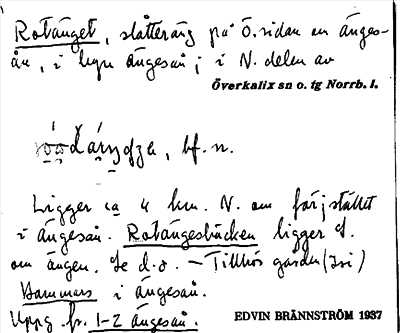 Rotänget, slåtteräng på Ö. sidan om Änges-
ån, i byn Ängeså; i N. delen av
Överkalix sn o. tg Norrb. l.
bf. n.
Ligger ca 4 km. N. om färjstället
i Ängeså. Rotängesbäcken ligger S.
om ängen. Se d.o. — Tillhör gården (Isi)
Hammars i Ängeså.
Uppg. fr. 1-2 Ängeså.
EDVIN BRÄNNSTRÖM 1937